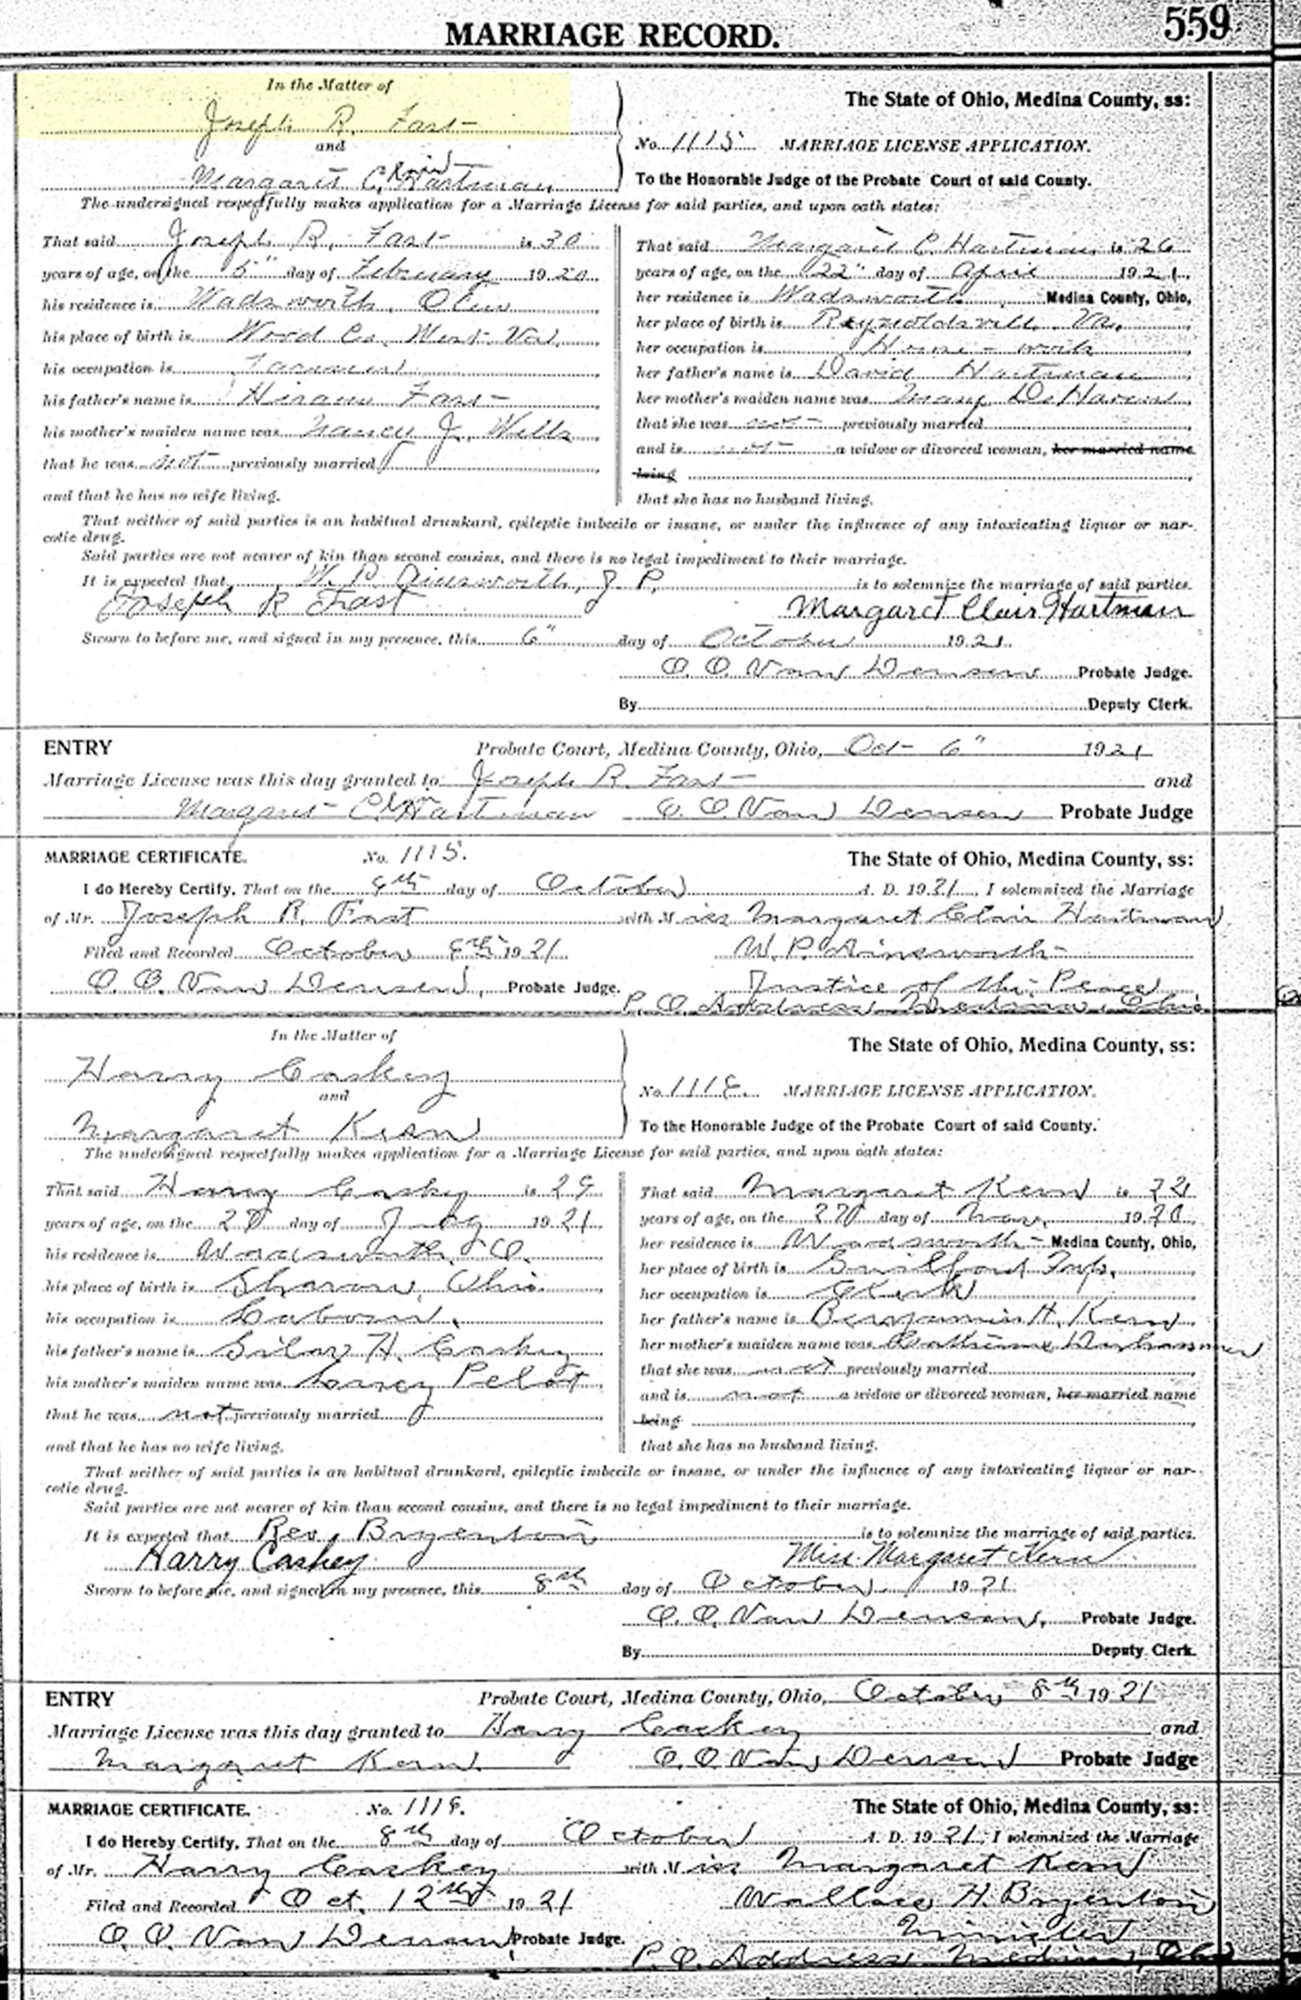 MARRIAGE RECORD.
559
In the Matter of
Joseph R. Fast
and
Margaret C. Hartman
The State of Ohio, Medina County, ss:
No. 1115. MARRIAGE LICENSE APPLICATION.
To the Honorable Judge of the Probate Court of said County.
The undersigned respectfully makes application for a Marriage License for said parties, and upon oath states:
That said Joseph R. Fast is 30
years of age, on the 5" day of February 1920
his residence is Wadsworth, Ohio
his place of birth is Wood Co. West Va.
his occupation is
his father's name is Hiram Fast
his mother's maiden name was Nancy J. Wells
that he was not previously married
and that he has no wife living.
That said Margaret C. Hartman is 26
years of age, on the 22" day of April 1921.
her residence is Wadsworth Medina County, Ohio,
her place of birth is Reynoldsville Va.
her occupation is House-work
her father's name is David Hartman
her mother's maiden name was Mary DeHaven
that she was not previously married
and is not a widow or divorced woman, her married name
being
that she has no husband living.
That neither of said parties is an habitual drunkard, epileptic imbecile or insane, or under the influence of any intoxicating liquor or nar-
cotic drug.
Said parties are not nearer of kin than second cousins, and there is no legal impediment to their marriage.
It is expected that W. P. Ainsworth, J. P. is to solemnize the marriage of said parties.
Joseph R Fast Margaret Clair Hartman
Sworn to before me, and signed in my presence, this 6" day of October 1921.
O. O. Van Deusen Probate Judge.
By Deputy Clerk.
ENTRY Probate Court, Medina County, Ohio, Oct- 6" 1921
Marriage License was this day granted to Joseph R. Fast and
Margaret C. Hartman O. O. Van Deusen Probate Judge
MARRIAGE CERTIFICATE. No. 1115. The State of Ohio, Medina County, ss:
I do Hereby Certify, That on the day of October A. D. 1921, I solemnized the Marriage
of Mr. Joseph R. Fast with Miss Margaret Clair Hartman
Filed and Recorded October 8th 1921 W. P. Ainsworth
O. O. Van Deusen, Probate Judge. Justice of the Peace
P. O. Address Medina, Ohio
In the Matter of
Harry Caskey
and
Margaret Kern
The State of Ohio, Medina County, ss:
No. 1118. MARRIAGE LICENSE APPLICATION.
To the Honorable Judge of the Probate Court of said County.
The undersigned respectfully makes application for a Marriage License for said parties, and upon oath states:
That said Harry Caskey is 29
years of age, on the day of July 1921
his residence is Wadsworth, O.
his place of birth is Sharon, Ohio
his occupation is Laborer.
his father's name is Silas H. Caskey
his mother's maiden name was Pelot
that he was not previously married
and that he has no wife living.
That said Margaret Kern is
years of age, on the day of Nov. 1920
her residence is Wadsworth Medina County, Ohio,
her place of birth is Guilford Twp.
her occupation is Clerk
her father's name is Benjamin H. Kern
her mother's maiden name was Catherine
that she was not previously married
and is not a widow or divorced woman, her married name
being
that she has no husband living.
That neither of said parties is an habitual drunkard, epileptic imbecile or insane, or under the influence of any intoxicating liquor or nar-
cotic drug.
Said parties are not nearer of kin than second cousins, and there is no legal impediment to their marriage.
It is expected that Rev. Bryenton is to solemnize the marriage of said parties.
Harry Caskey Miss Margaret Kern
Sworn to before me, and signed in my presence, this 8th day of October 1921
O. O. Van Deusen, Probate Judge.
By Deputy Clerk.
ENTRY Probate Court, Medina County, Ohio, October 8th 1921
Marriage License was this day granted to Harry Caskey and
Margaret Kern O. O. Van Deusen Probate Judge
MARRIAGE CERTIFICATE. No. 1118. The State of Ohio, Medina County, ss:
I do Hereby Certify, That on the 8th day of October A. D. 1921, I solemnized the Marriage
of Mr. Harry Caskey with Miss Margaret Kern
Filed and Recorded Oct. 12th 1921 Wallace H. Bryenton
O. O. Van Deusen, Probate Judge. Minister
P. O. Address Medina, Ohio